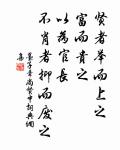 賢者舉而上之
富而貴之
以為官長
不肖者抑而廢之
墨子 尚賢中詞典網
集